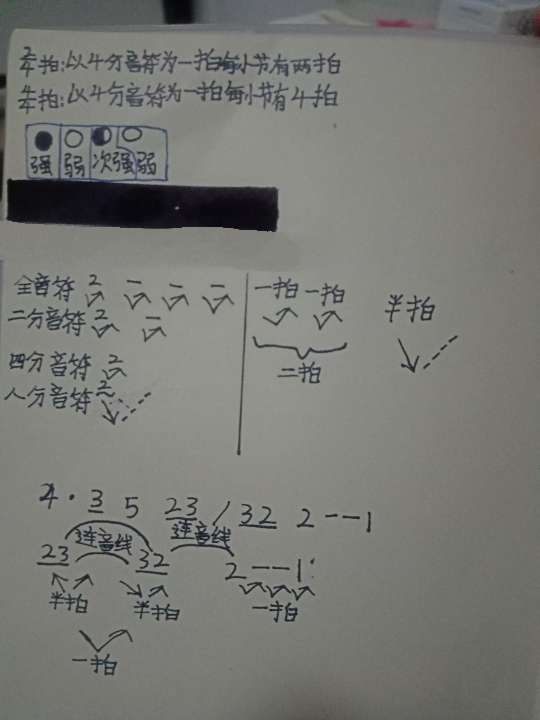 2/4拍:以4分音符为一拍每小节有两拍
4/4拍:以4分音符为一拍每小节有4拍
强 弱 次强 弱
全音符 2 — — —
二分音符 2 —
四分音符 2
八分音符 2
一拍 一拍
二拍
半拍
4· 3 5 23 / 32 2 - - 1
连音线 连音线
23 32 2 - - 1
半拍 半拍 一拍
一拍